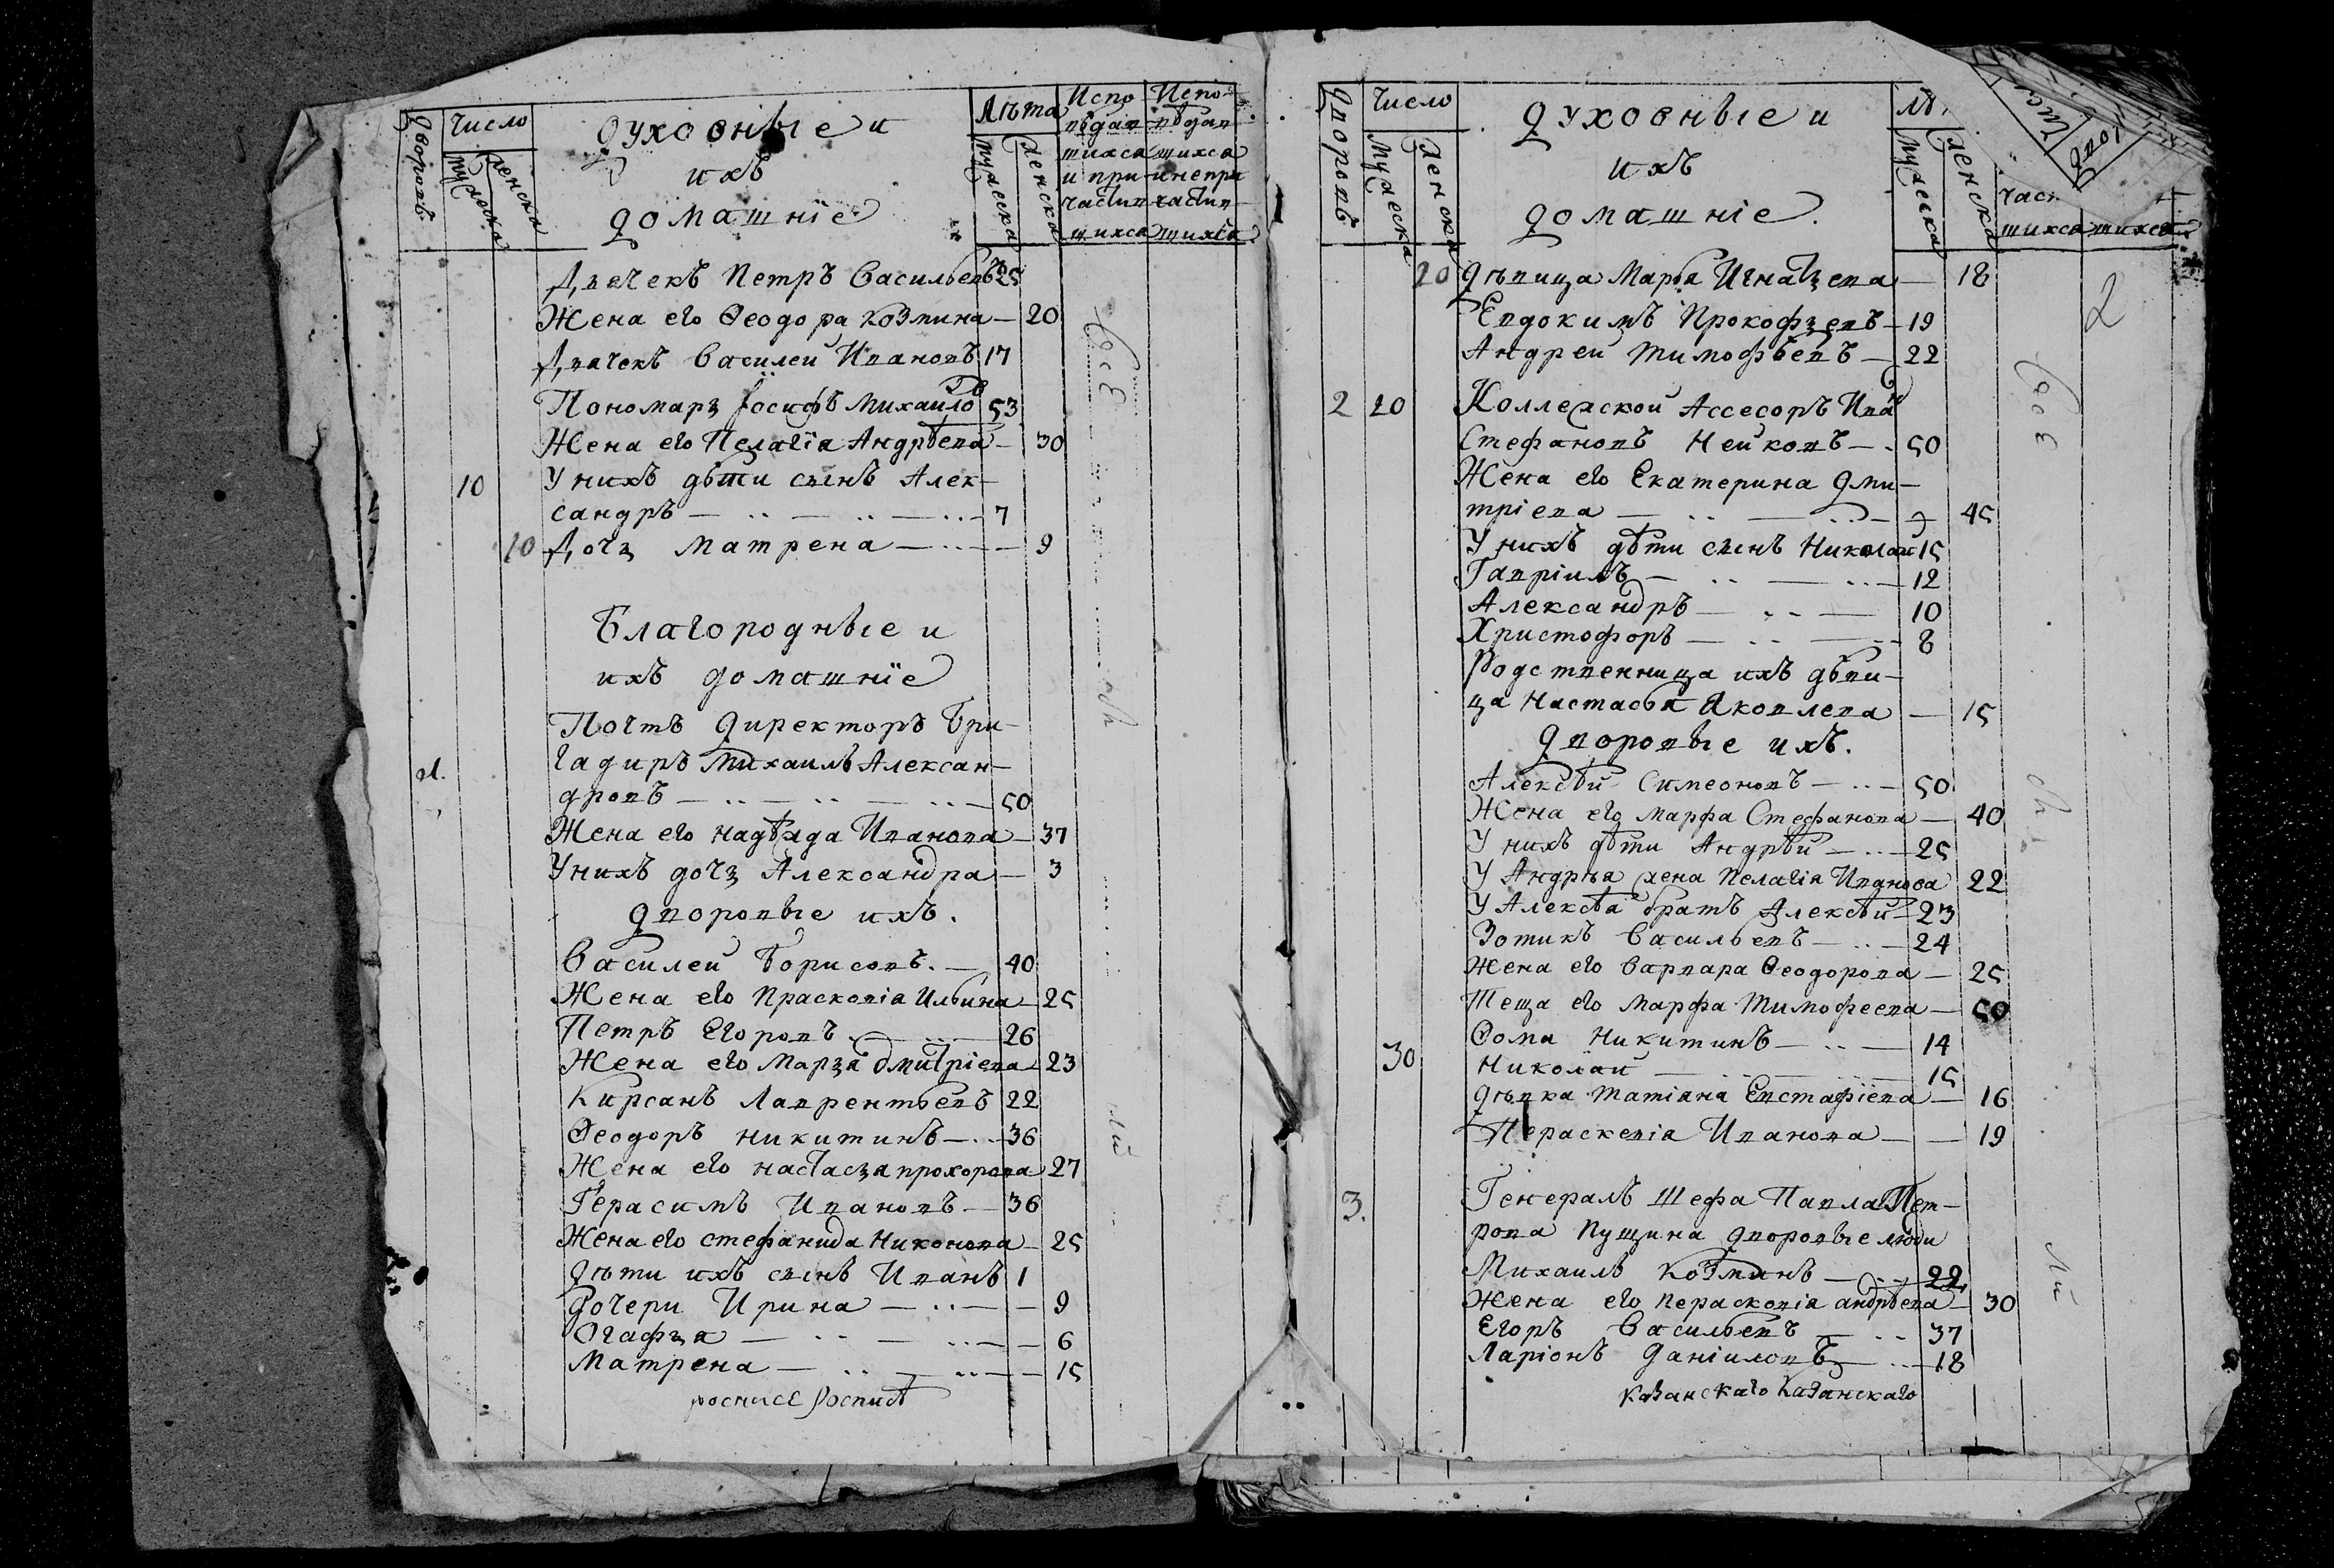 Дворовъ
Число
Мужеска
Женска
Духовные и
ихъ
домашніе
Лѣта
Мужеска
Женска
Испо
вѣдав
шихся
и при
частив
шихся
Испо-
вѣдав
шихся
и не при
частив-
шихся
Дьячекъ Петръ Васильевъ 25
Жена его Ѳеодора Козмина — 20
Дьячекъ Василеи Ивановъ 17
Пономарь Іосифъ Михаиловъ 53
Жена его Пелагіа Андрѣева — 30
10 У нихъ дѣти сынъ Алек-
сандръ — 7
10 Дочь Матрена — 9
Благородные и
ихъ домашніе
Почтъ Директоръ Бри-
1. гадиръ Михаилъ Алексан-
дровъ — 50
Жена его Надѣжда Иванова — 37
У нихъ дочь Александра — 3
Дворовые ихъ.
Василеи Борисовъ. — 40
Жена его Прасковіа Ильина — 25
Петръ Егоровъ — 26
Жена его Марья Дмитріева 23
Кирсанъ Лаврентьевъ 22
Ѳеодоръ Никитинъ — 36
Жена его Настасья Прохорова 27
Герасимъ Ивановъ — 36
Жена его Стефанида Никонова — 25
Дѣти ихъ сынъ Иванъ 1
Дочери Ирина — 9
Огафья — 6
Матрена — 15
росписе Росписѣ
Дворовъ
Число
Мужеска
Женска
Духовные и
ихъ
домашніе.
Лѣ
Мужеска
Женска
част
шихся
шихся
Число
Двор
2
20 Дѣвица Марѳа Игнатьева — 18
Евдокимъ Прокофьевъ — 19
Андреи Тимофѣевъ — 22
2 20 Коллежской Ассесоръ Иванъ
Стефановъ Неиковъ — 50
Жена его Екатерина Дми-
тріева — 45
У нихъ дѣти сынъ Николаи 15
Гавріилъ — 12
Александръ — 10
Христофоръ — 8
Родственница ихъ дѣви-
ца Настасья Яковлева — 15
Дворовые ихъ.
Алексѣй Симеоновъ — 50
Жена его Марфа Стефанова — 40
У нихъ дѣти Андрѣй — 25
У Андрѣа жена Пелагіа Иванова 22
У Алексѣа братъ Алексѣй — 23
Зотикъ Васильевъ — 24
Жена его Варвара Ѳеодорова — 25
Теща его Марфа Тимофеева — 50
Ѳома Никитинъ — 14
30 Николай — 15
Дѣвка Татіана Евстафіева — 16
Пераскевіа Иванова — 19
3. Генералъ Шефа Павла Пет-
рова Пущина дворовые люди
Михаилъ Козминъ — 22
Жена его Пераскевіа Андрѣева — 30
Егоръ Васильевъ — 37
Ларіонъ Даніиловъ — 18
Казанскаго Казанскаго